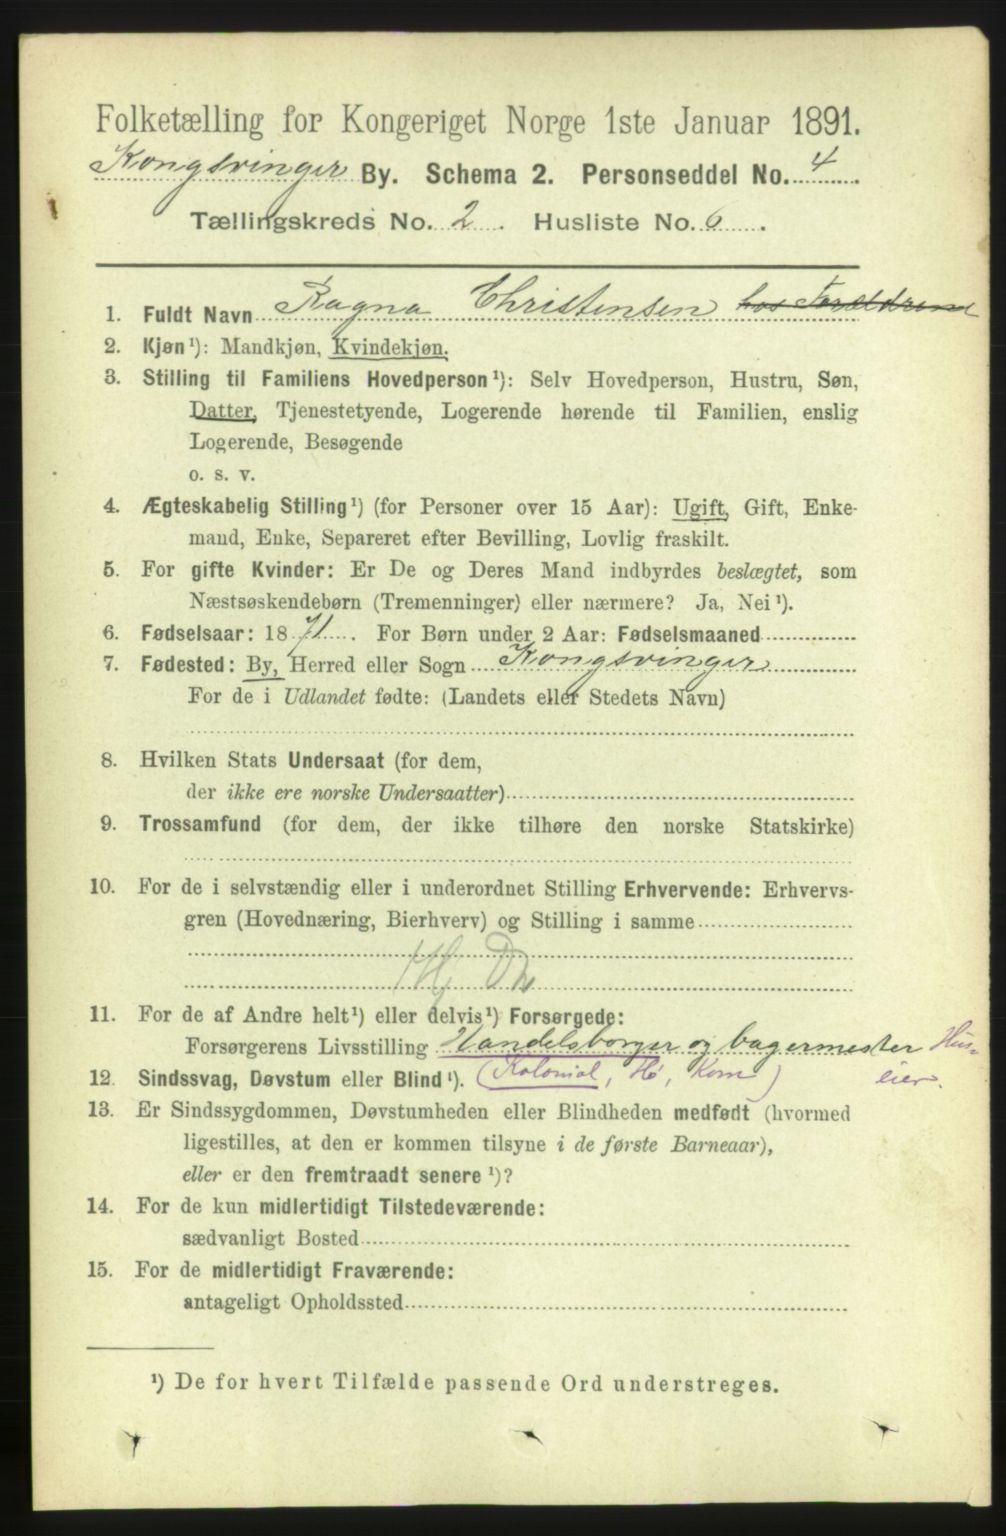 Folketælling for Kongeriget Norge 1ste Januar 1891.
Kongsvinger By. Schema 2. Personseddel No. 4.
Tællingskreds No. 2. Husliste No. 6.
1. Fuldt Navn Ragna Christensen hos Forældrene
2. Kjøn¹): Mandkjøn, Kvindekjøn.
3. Stilling til Familiens Hovedperson¹): Selv Hovedperson, Hustru, Søn,
Datter, Tjenestetyende, Logerende hørende til Familien, enslig
Logerende, Besøgende
o. s. v.
4. Ægteskabelig Stilling¹) (for Personer over 15 Aar): Ugift, Gift, Enke-
mand, Enke, Separeret efter Bevilling, Lovlig fraskilt.
5. For gifte Kvinder: Er De og Deres Mand indbyrdes beslægtet, som
Næstsøskendebørn (Tremenninger) eller nærmere? Ja, Nei¹).
6. Fødselsaar: 1871. For Børn under 2 Aar: Fødselsmaaned
7. Fødested: By, Herred eller Sogn Kongsvinger
For de i Udlandet fødte: (Landets eller Stedets Navn)
8. Hvilken Stats Undersaat (for dem,
der ikke ere norske Undersaatter)
9. Trossamfund (for dem, der ikke tilhøre den norske Statskirke)
10. For de i selvstændig eller i underordnet Stilling Erhvervende: Erhvervs-
gren (Hovednæring, Bierhverv) og Stilling i samme
11. For de af Andre helt¹) eller delvis¹) Forsørgede:
Forsørgerens Livsstilling Handelsborger og bagermester Hus-
12. Sindssvag, Døvstum eller Blind¹). (Kolonial, Hø, Korn) eier.
13. Er Sindssygdommen, Døvstumheden eller Blindheden medfødt (hvormed
ligestilles, at den er kommen tilsyne i de første Barneaar),
eller er den fremtraadt senere¹)?
14. For de kun midlertidigt Tilstedeværende:
sædvanligt Bosted
15. For de midlertidigt Fraværende:
antageligt Opholdssted
¹) De for hvert Tilfælde passende Ord understreges.